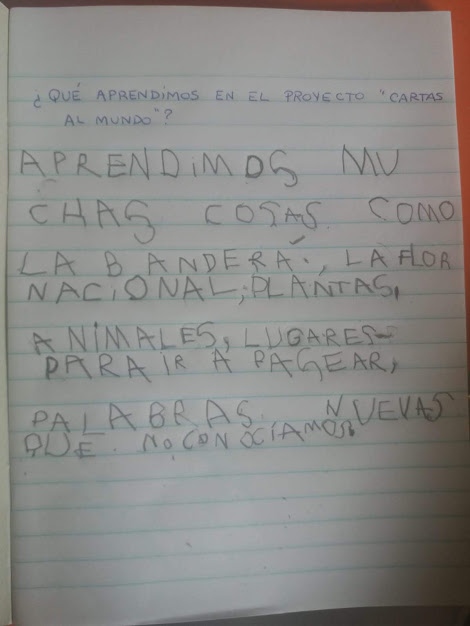 ¿QUÉ APRENDIMOS EN EL PROYECTO "CARTAS
AL MUNDO"?
APRENDIMOS MU
CHAS COSAS. COMO
LA BANDERA., LA FLOR
NACIONAL, PLANTAS,
ANIMALES, LUGARES
PARA IR A PASEAR,
PALABRAS. NUEVAS
QUE. NO CONOCÍAMOS.